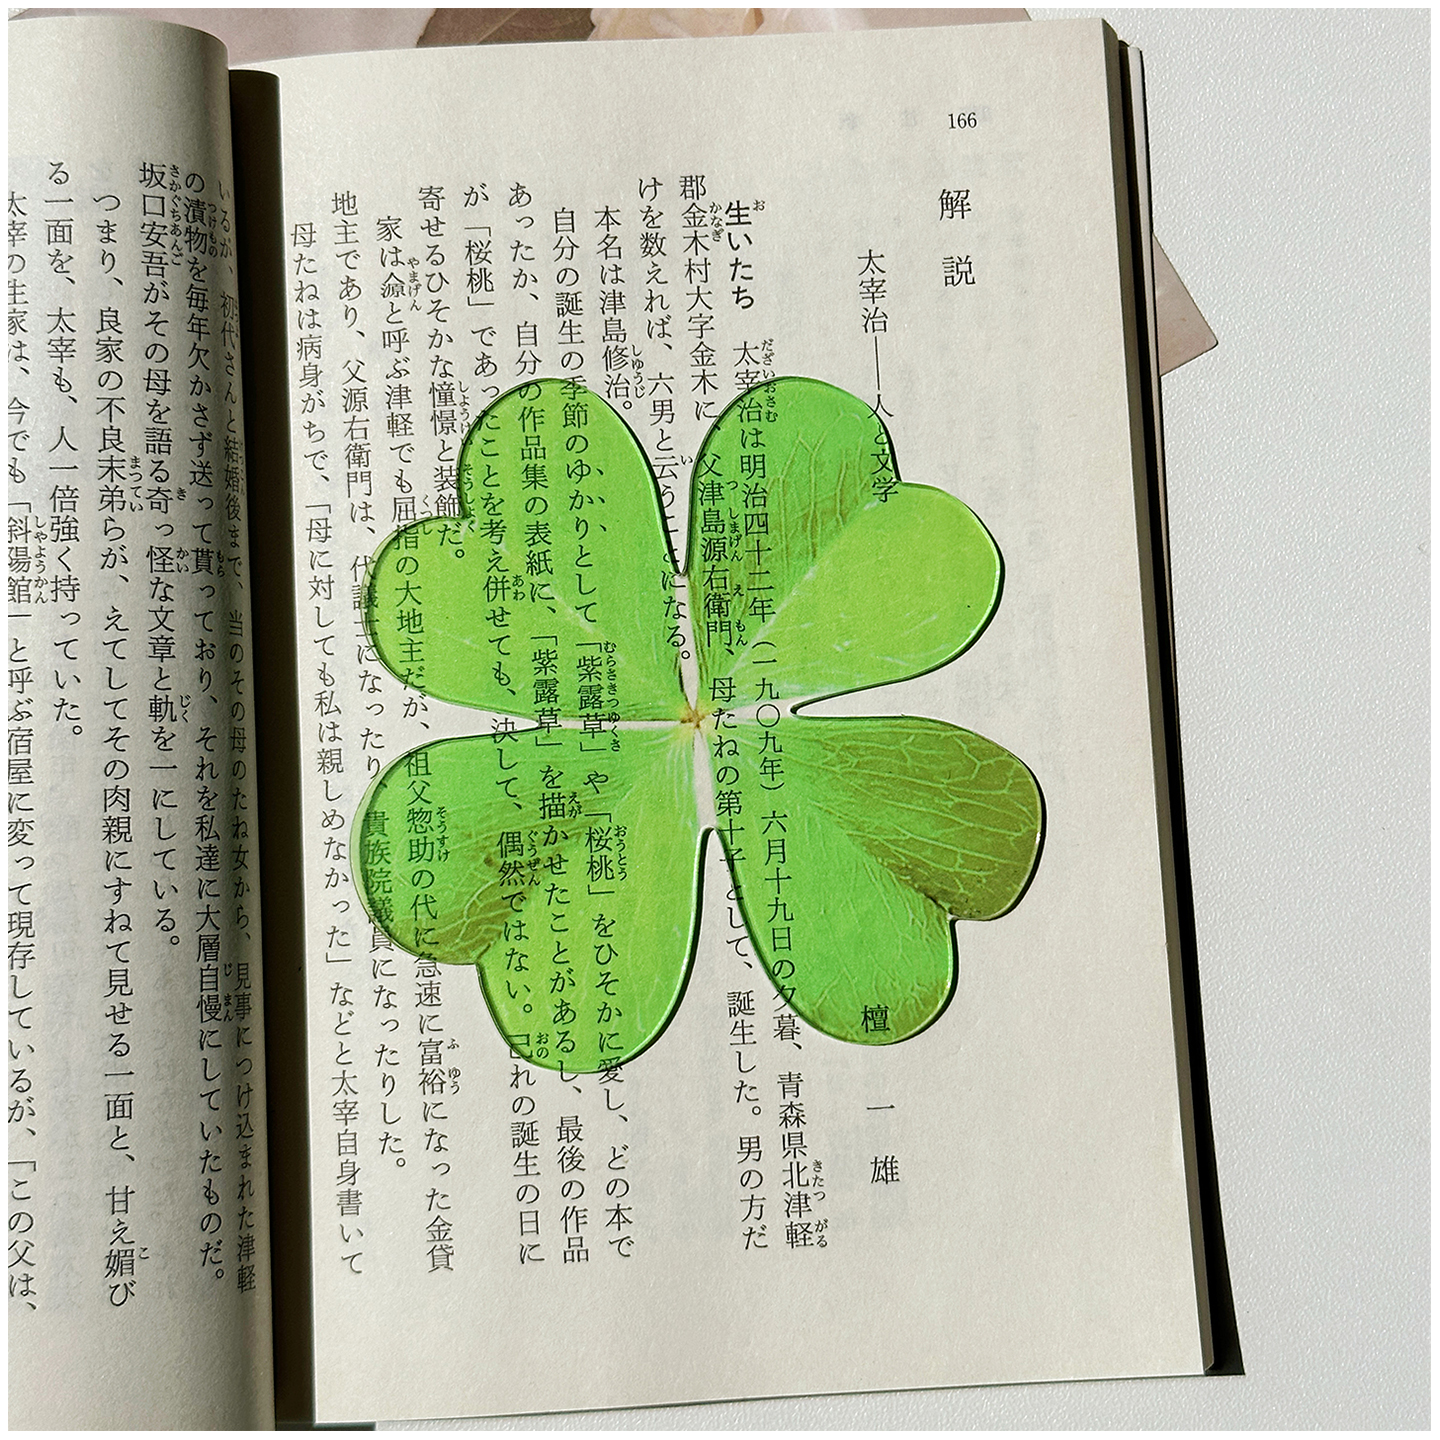 166
解説
太宰治――人と文学
檀一雄
生いたち　太宰治は明治四十二年（一九〇九年）六月十九日の夕暮、青森県北津軽
郡金木村大字金木に、父津島源右衛門、母たねの第十子として、誕生した。男の方だ
けを数えれば、六男と云うことになる。
本名は津島修治。
自分の誕生の季節のゆかりとして「紫露草」や「桜桃」をひそかに愛し、どの本で
あったか、自分の作品集の表紙に、「紫露草」を描かせたことがあるし、最後の作品
が「桜桃」であったことを考え併せても、決して、偶然ではない。己れの誕生の日に
寄せるひそかな憧憬と装飾だ。
家は源と呼ぶ津軽でも屈指の大地主だが、祖父惣助の代に急速に富裕になった金貸
地主であり、父源右衛門は、代議士になったり、貴族院議員になったりした。
母たねは病身がちで、「母に対しても私は親しめなかった」などと太宰自身書いて
いるが、初代さんと結婚後まで、当のその母のたね女から、見事につけ込まれた津軽
の漬物を毎年欠かさず送って貰っており、それを私達に大層自慢にしていたものだ。
坂口安吾がその母を語る奇っ怪な文章と軌を一にしている。
つまり、良家の不良末弟らが、えてしてその肉親にすねて見せる一面と、甘え媚び
る一面を、太宰も、人一倍強く持っていた。
太宰の生家は、今でも「斜陽館」と呼ぶ宿屋に変って現存しているが、「この父は、